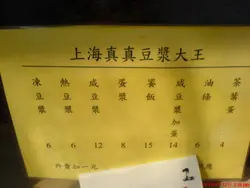 上海真真豆漿大王
凍豆漿 6
熱豆漿 6
咸豆漿 12
蛋漿 8
粢飯 15
咸豆漿加蛋 14
油條 6
茶葉蛋 4
外賣加一元